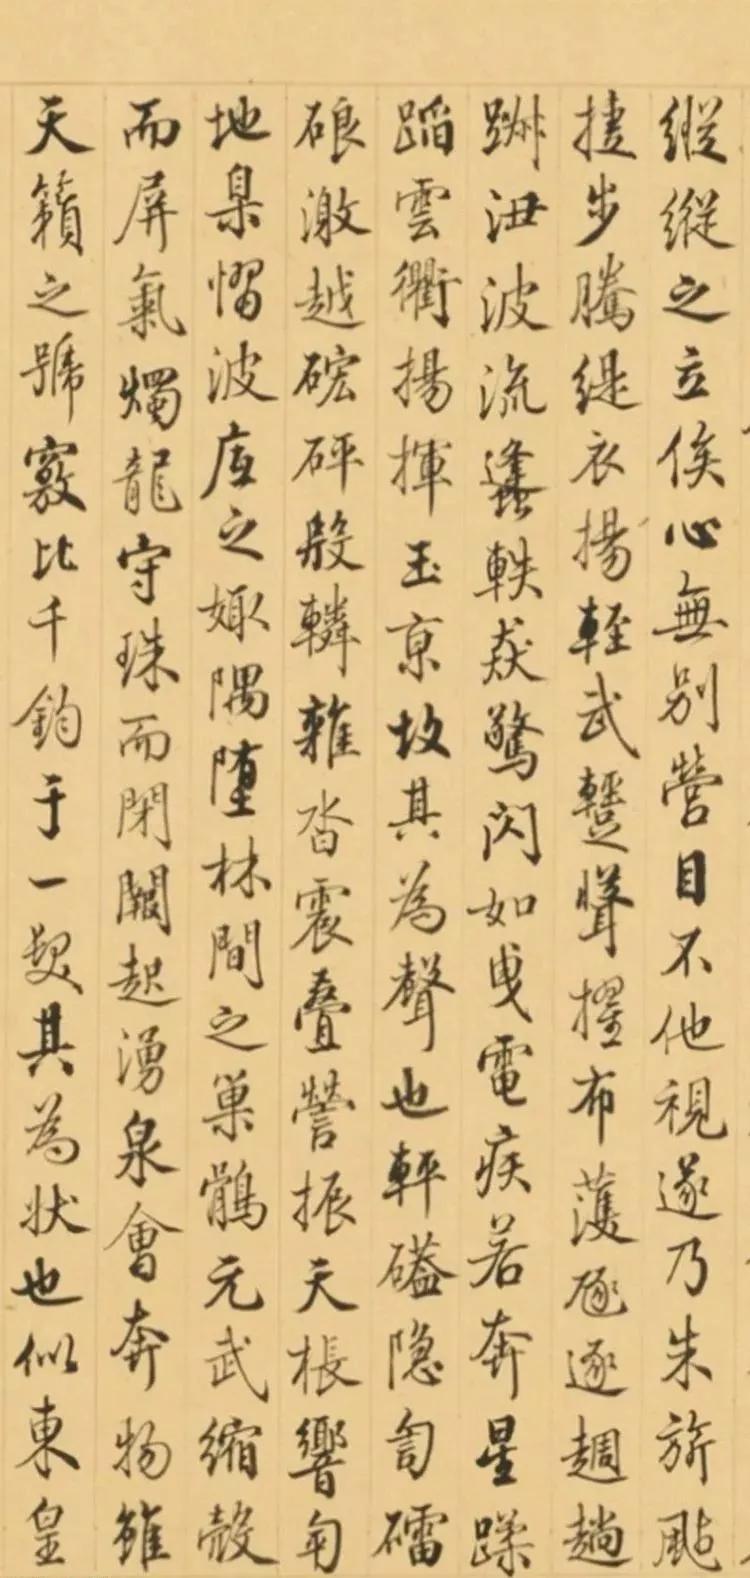 縱縱之立俟心無別營目不他視遂乃朱旂颭
捷步騰緹衣揚輕武躉聳擢布護逐趨
跰泄波流軼猋驚閃如曳電疾若奔星蹂
蹈雲衢揚揮玉京故其為聲也軯磕隐訇礌
硠激越硡砰殷轔雜沓震疊謍振天棖響匉
地臬慴波之娵隅墮林間之巢鶻元武縮殼
而屏氣燭龍守珠而閉闞起湧泉會奔物雖
天籟之號竅比千鈞于一髮其為狀也似東皇